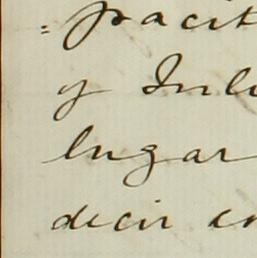 =pacit
y Inl
lugar
decir en